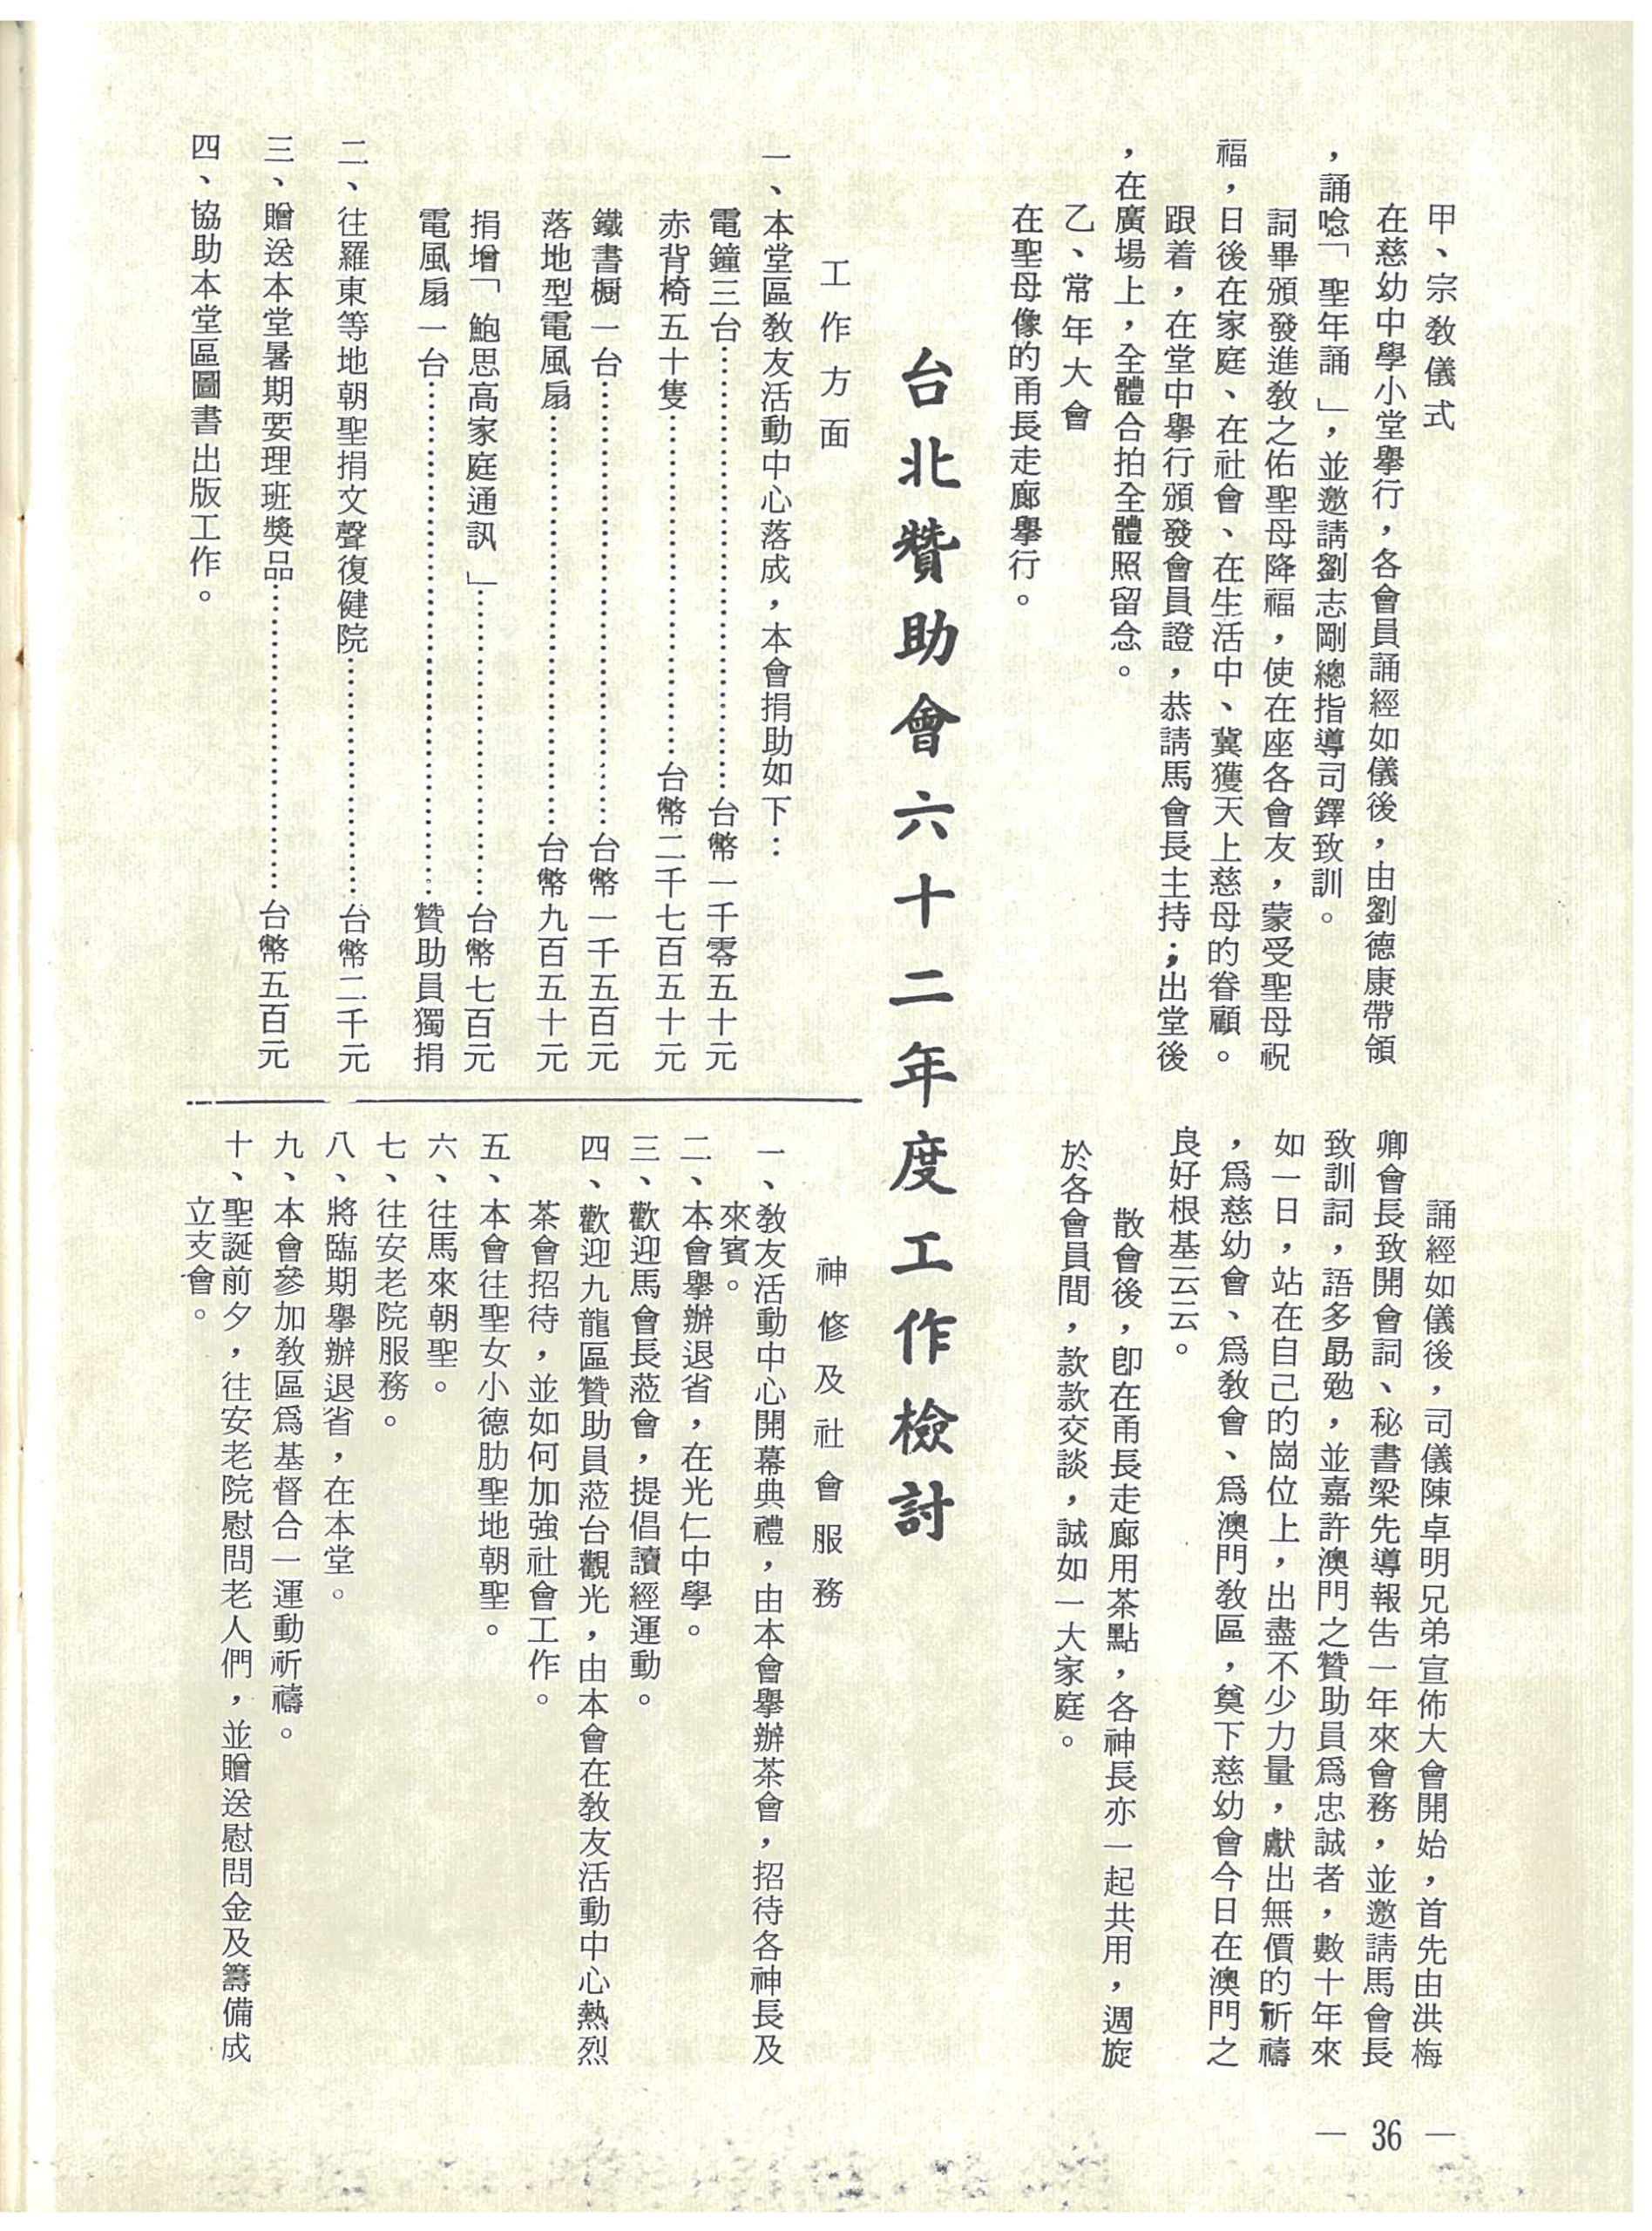 甲、宗教儀式
在慈幼中學小堂舉行，各會員誦經如儀後，由劉德康帶領
，誦唸「聖年誦」，並邀請劉志剛總指導司鐸致訓。
詞畢頒發進教之佑聖母降福，使在座各會友，蒙受聖母祝
福，日後在家庭、在社會、在生活中、冀獲天上慈母的眷顧。
跟着，在堂中舉行頒發會員證，恭請馬會長主持；出堂後
，在廣場上，全體合拍全體照留念。
乙、常年大會
在聖母像的甬長走廊舉行。
誦經如儀後，司儀陳卓明兄弟宣佈大會開始，首先由洪梅
卿會長致開會詞、秘書梁先導報告一年來會務，並邀請馬會長
致訓詞，語多勗勉，並嘉許澳門之贊助員為忠誠者，數十年來
如一日，站在自己的崗位上，出盡不少力量，獻出無價的祈禱
，為慈幼會、為教會、為澳門教區，奠下慈幼會今日在澳門之
良好根基云云。
散會後，卽在甬長走廊用茶點，各神長亦一起共用，週旋
於各會員間，款款交談，誠如一大家庭。
台北贊助會六十二年度工作檢討
工作方面
一、本堂區教友活動中心落成，本會捐助如下：
電鐘三台……………………………台幣一千零五十元
赤背椅五十隻……………………………台幣二千七百五十元
鐵書橱一台……………………………台幣一千五百元
落地型電風扇……………………………台幣九百五十元
捐增「鮑思高家庭通訊」……………………台幣七百元
電風扇一台……………………………贊助員獨捐
二、往羅東等地朝聖捐文聲復健院………………台幣二千元
三、贈送本堂暑期要理班獎品……………………台幣五百元
四、協助本堂區圖書出版工作。
神修及社會服務
一、教友活動中心開幕典禮，由本會舉辦茶會，招待各神長及
來賓。
二、本會舉辦退省，在光仁中學。
三、歡迎馬會長蒞會，提倡讀經運動。
四、歡迎九龍區贊助員蒞台觀光，由本會在教友活動中心熱烈
茶會招待，並如何加強社會工作。
五、本會往聖女小德肋聖地朝聖。
六、往馬來朝聖。
七、往安老院服務。
八、將臨期舉辦退省，在本堂。
九、本會參加教區為基督合一運動祈禱。
十、聖誕前夕，往安老院慰問老人們，並贈送慰問金及籌備成
立支會。
— 36 —